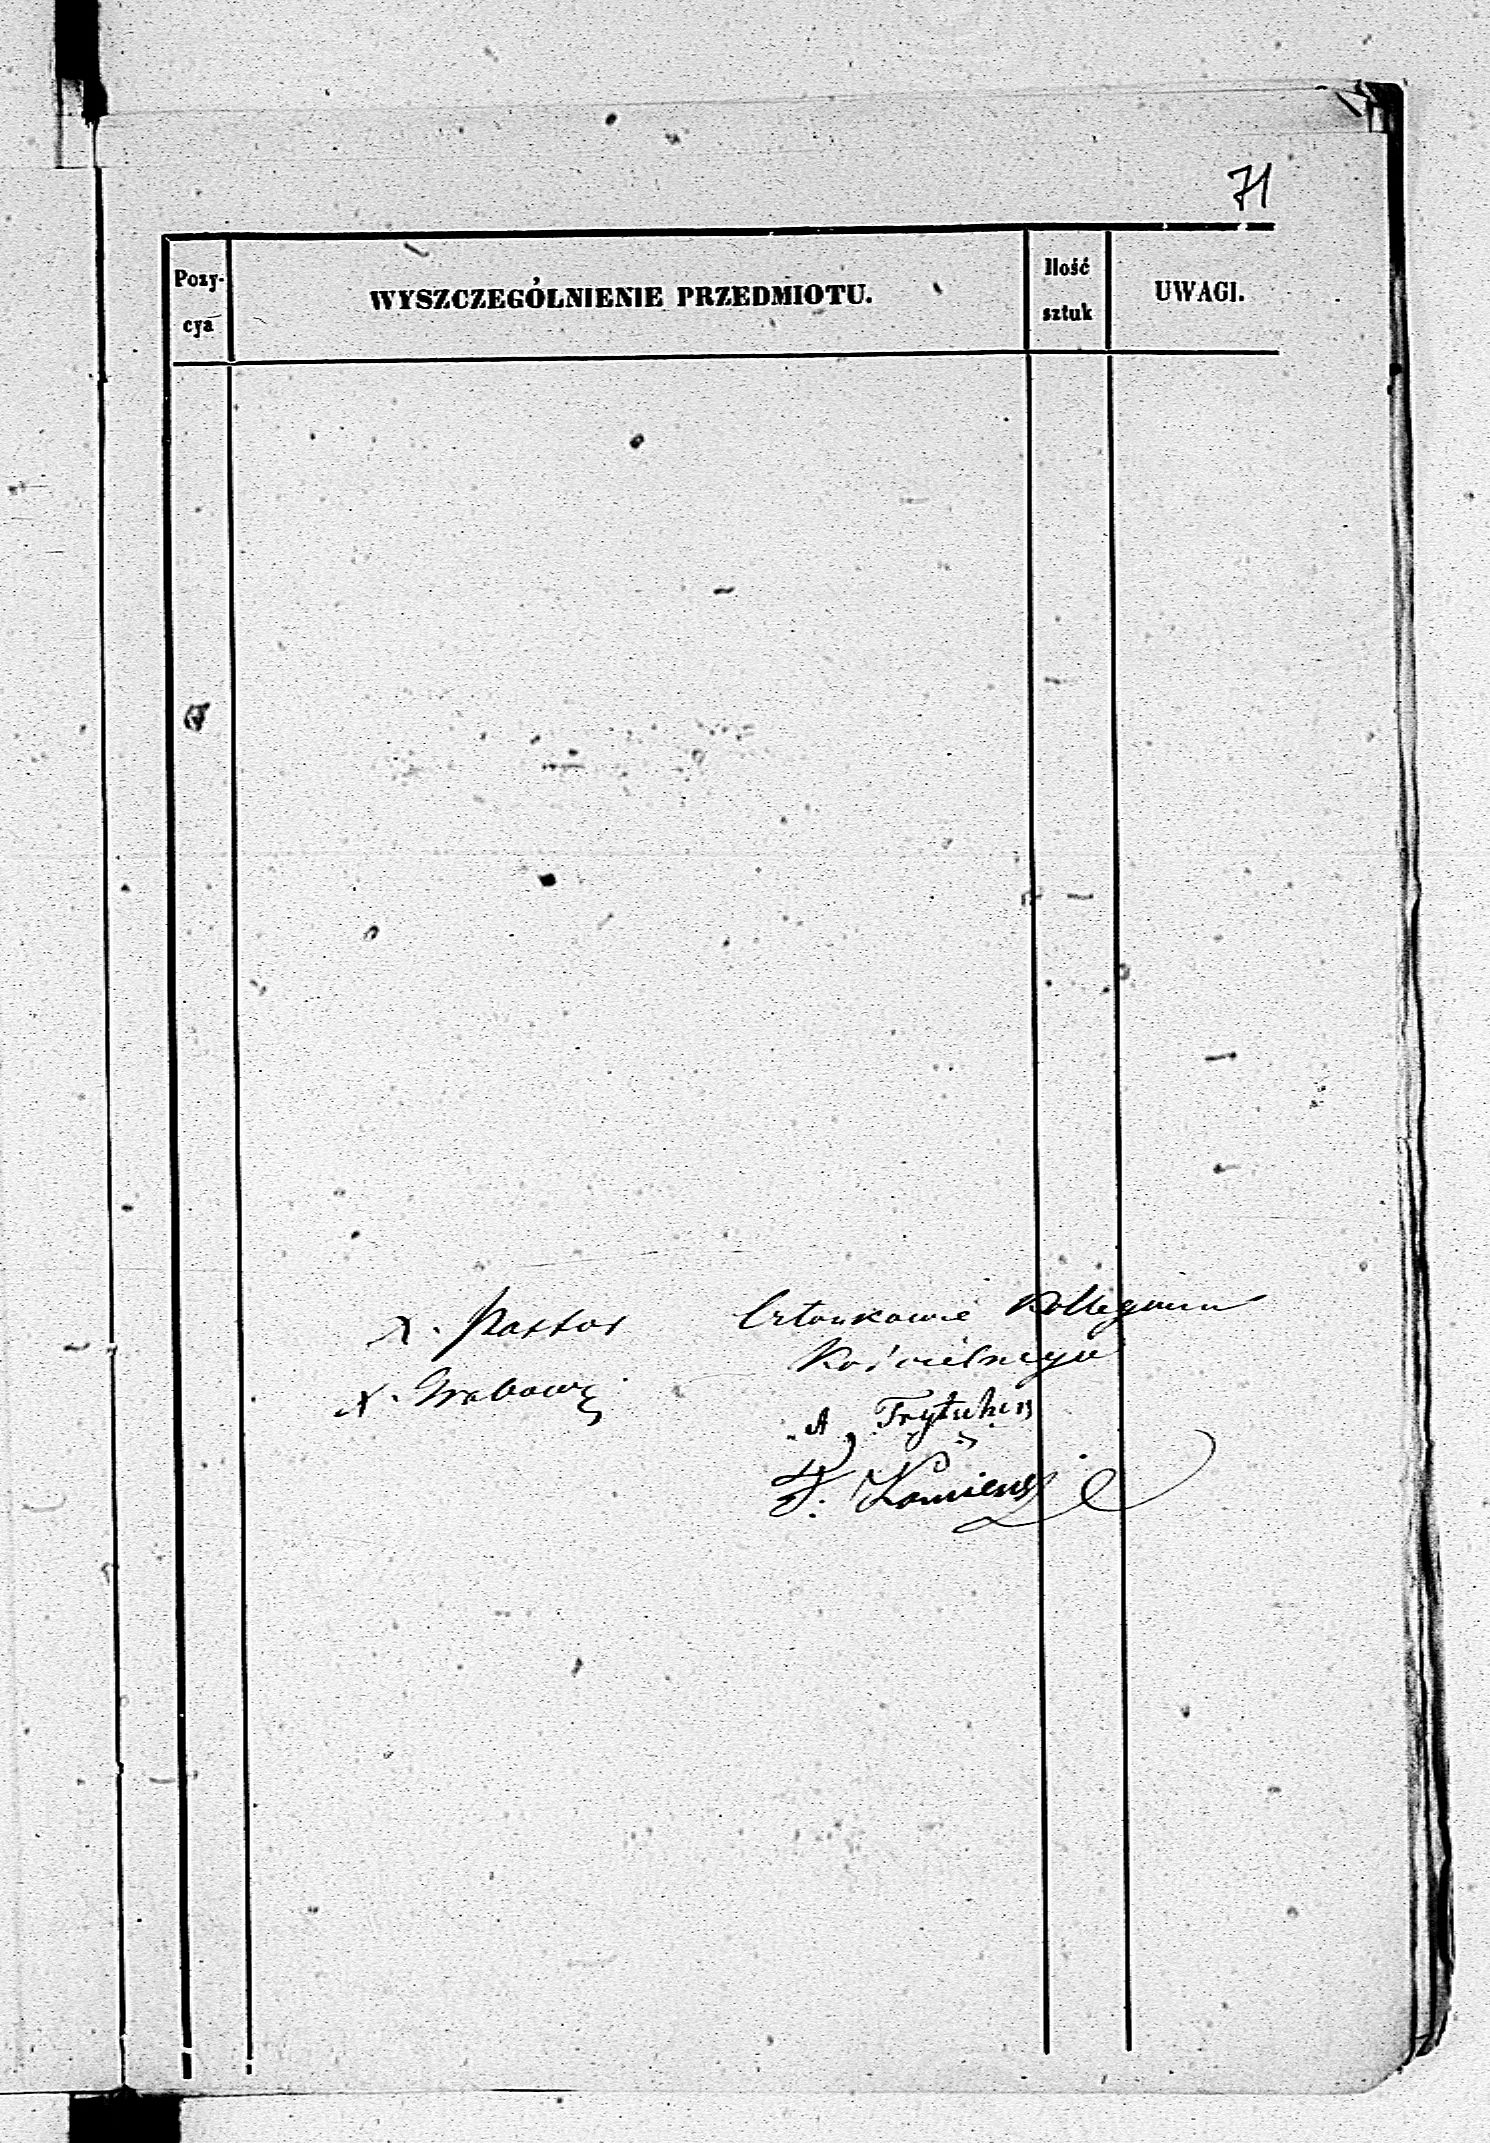 71
Pozy-
cya
WYSZCZEGÓLNIENIE PRZEDMIOTU.
Ilość
sztuk
UWAGI.
X. Pastor
X. Grabowski
Członkowie Kollegium
Kościelnego
A
F. Kamieński